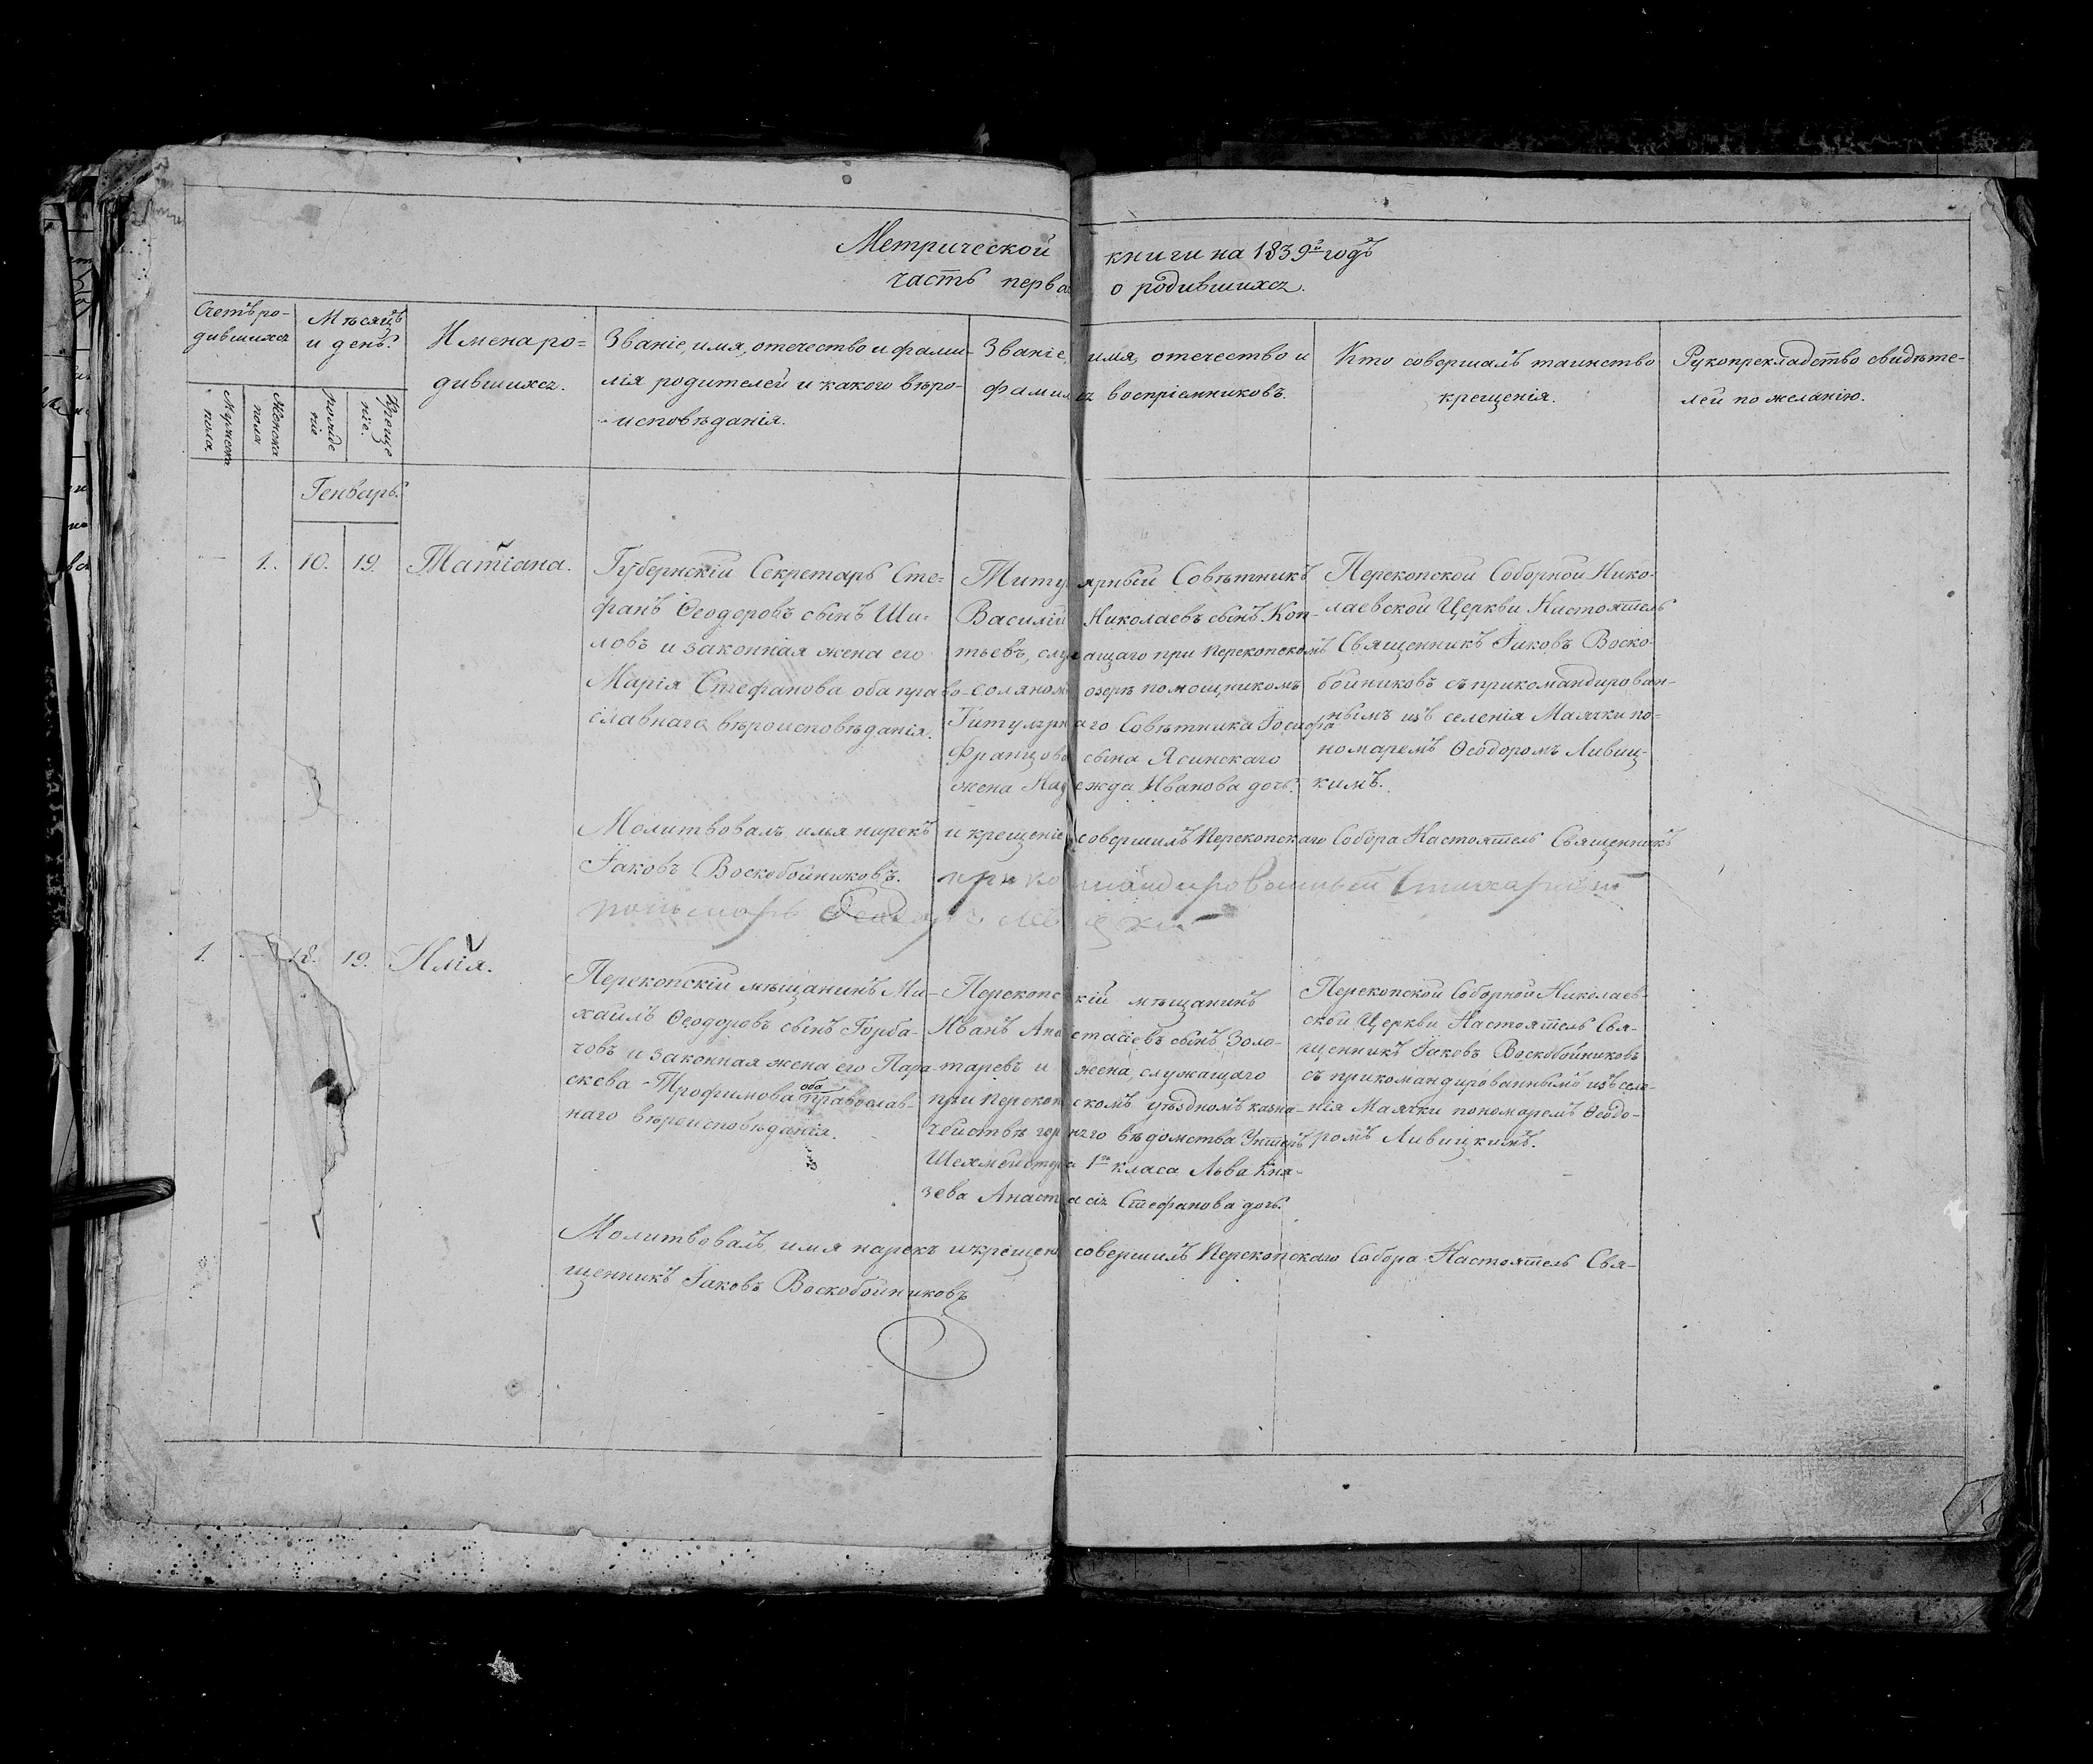 Метрической книги на 1839й годъ
часть перва о родившихся.
Счетъ ро-
дившихся
Мужеска
пола
Женска
пола
Мѣсяцъ
и день.
рожде
ніе
Креще
ніе.
Имена ро=
дившихся.
Званіе, имя, отечество и фами-
лія родителей и какого вѣро-
исповѣданія.
Званіе, имя, отечество и
фамилія воспріемниковъ.
Кто совершалъ таинство
крещенія.
Рукоприкладство свидѣте-
лей по желанію.
Генварь.
1. 10. 19. Татіана.
Губернскій Секретарь Сте=
фанъ Ѳеодоровъ сынъ Ши=
ловъ и законная жена его
Марія Стефанова оба право-
славнаго вѣроисповѣданія.
Титулярный Совѣтникъ
Василій Николаевъ сынъ Коп-
тьевъ, служащаго при Перекопскомъ
соляномъ озерѣ помощникомъ
Титулярнаго Совѣтника Іосифа
Францова сына Ясинскаго
жена Надежда Иванова дочь.
Перекопской Соборной Нико-
лаевской Церкви Настоятель
Священникъ Іаковъ Воско-
бойниковъ съ прикомандирован-
нымъ изъ селенія Маячки по-
номаремъ Ѳеодоромъ Ливиц-
кимъ.
Молитвовалъ, имя нарекъ и крещеніе совершилъ Перекопскаго Собора Настоятель Священникъ
Іаковъ Воскобойниковъ. прикомандированный Стихарный
пономарь Ѳеодоръ
1. 18. 19. Илія.
Перекопскій мѣщанинъ Ми-
хаилъ Ѳеодоровъ сынъ Горба-
човъ и законная жена его Пара-
скева Трофимова оба православ-
наго вѣроисповѣданія.
Перекопскій мѣщанинъ
Иванъ Анастасіевъ сынъ Золо-
таревъ и жена, служащаго
при Перекопскомъ уѣздномъ казна-
чействѣ горнаго вѣдомства Унтеръ
Шехмейстера 1го класа Льва Кня-
зева Анастасія Стефанова дочь.
Перекопской Соборной Николаев-
ской Церкви Настоятель Свя-
щенникъ Іаковъ Воскобойниковъ
съ прикомандированнымъ изъ селе-
нія Маячки пономаремъ Ѳеодо-
ромъ Ливицкимъ.
Молитвовалъ, имя нарекъ и крещеніе совершилъ Перекопскаго Собора Настоятель Свя-
щенникъ Іаковъ Воскобойниковъ